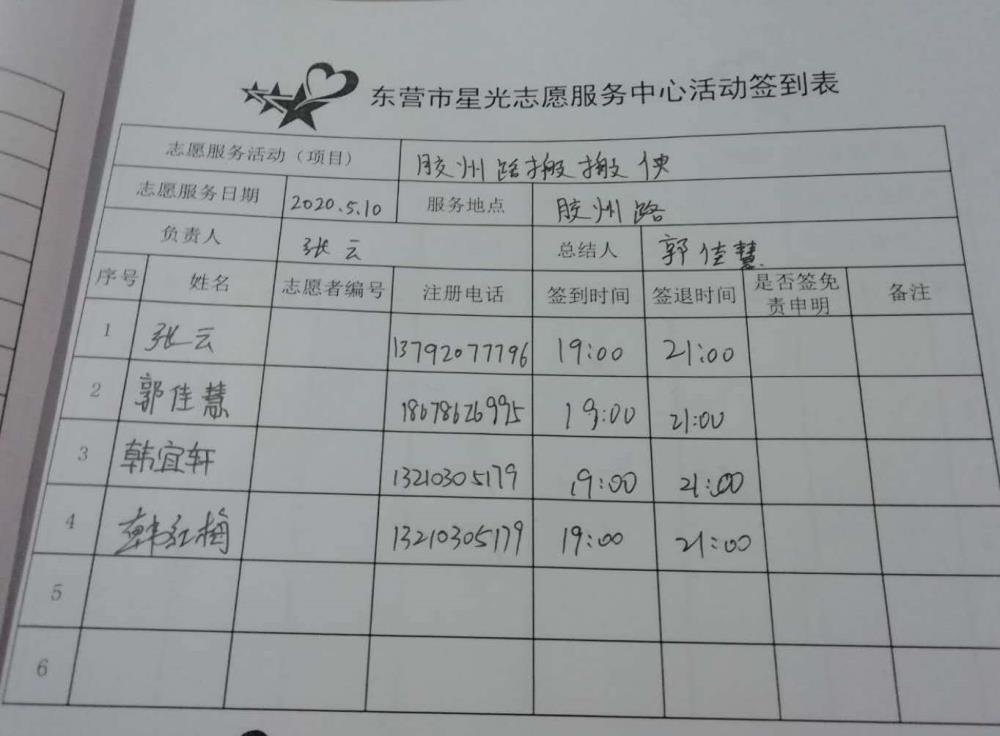 东营市星光志愿服务中心活动签到表
志愿服务活动（项目） 胶州路搬搬侠
志愿服务日期 2020.5.10 服务地点 胶州路
负责人 张云 总结人 郭佳慧
序号 姓名 志愿者编号 注册电话 签到时间 签退时间 是否签免责申明 备注
1 张云 13792077796 19:00 21:00
2 郭佳慧 18678626995 19:00 21:00
3 韩宜轩 13210305179 19:00 21:00
4 韩红梅 13210305179 19:00 21:00
5
6